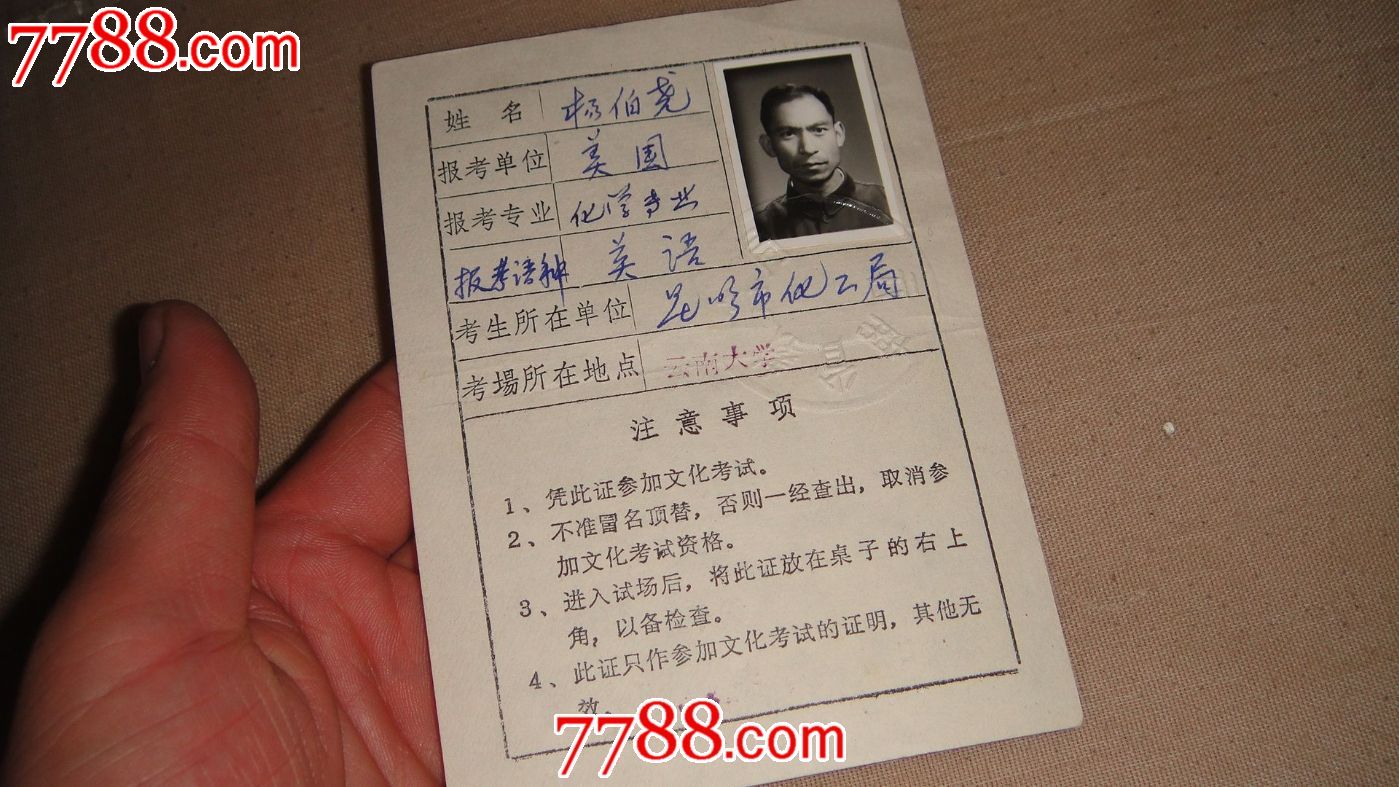 7788.com
姓名 杨伯尧
报考单位 美国
报考专业 化学专业
报考语种 英语
考生所在单位 昆明市化工局
考場所在地点 云南大学
注意事项
1、凭此证参加文化考试。
2、不准冒名顶替，否则一经查出，取消参
加文化考试资格。
3、进入试场后，将此证放在桌子的右上
角，以备检查。
4、此证只作参加文化考试的证明，其他无
效。
7788.com